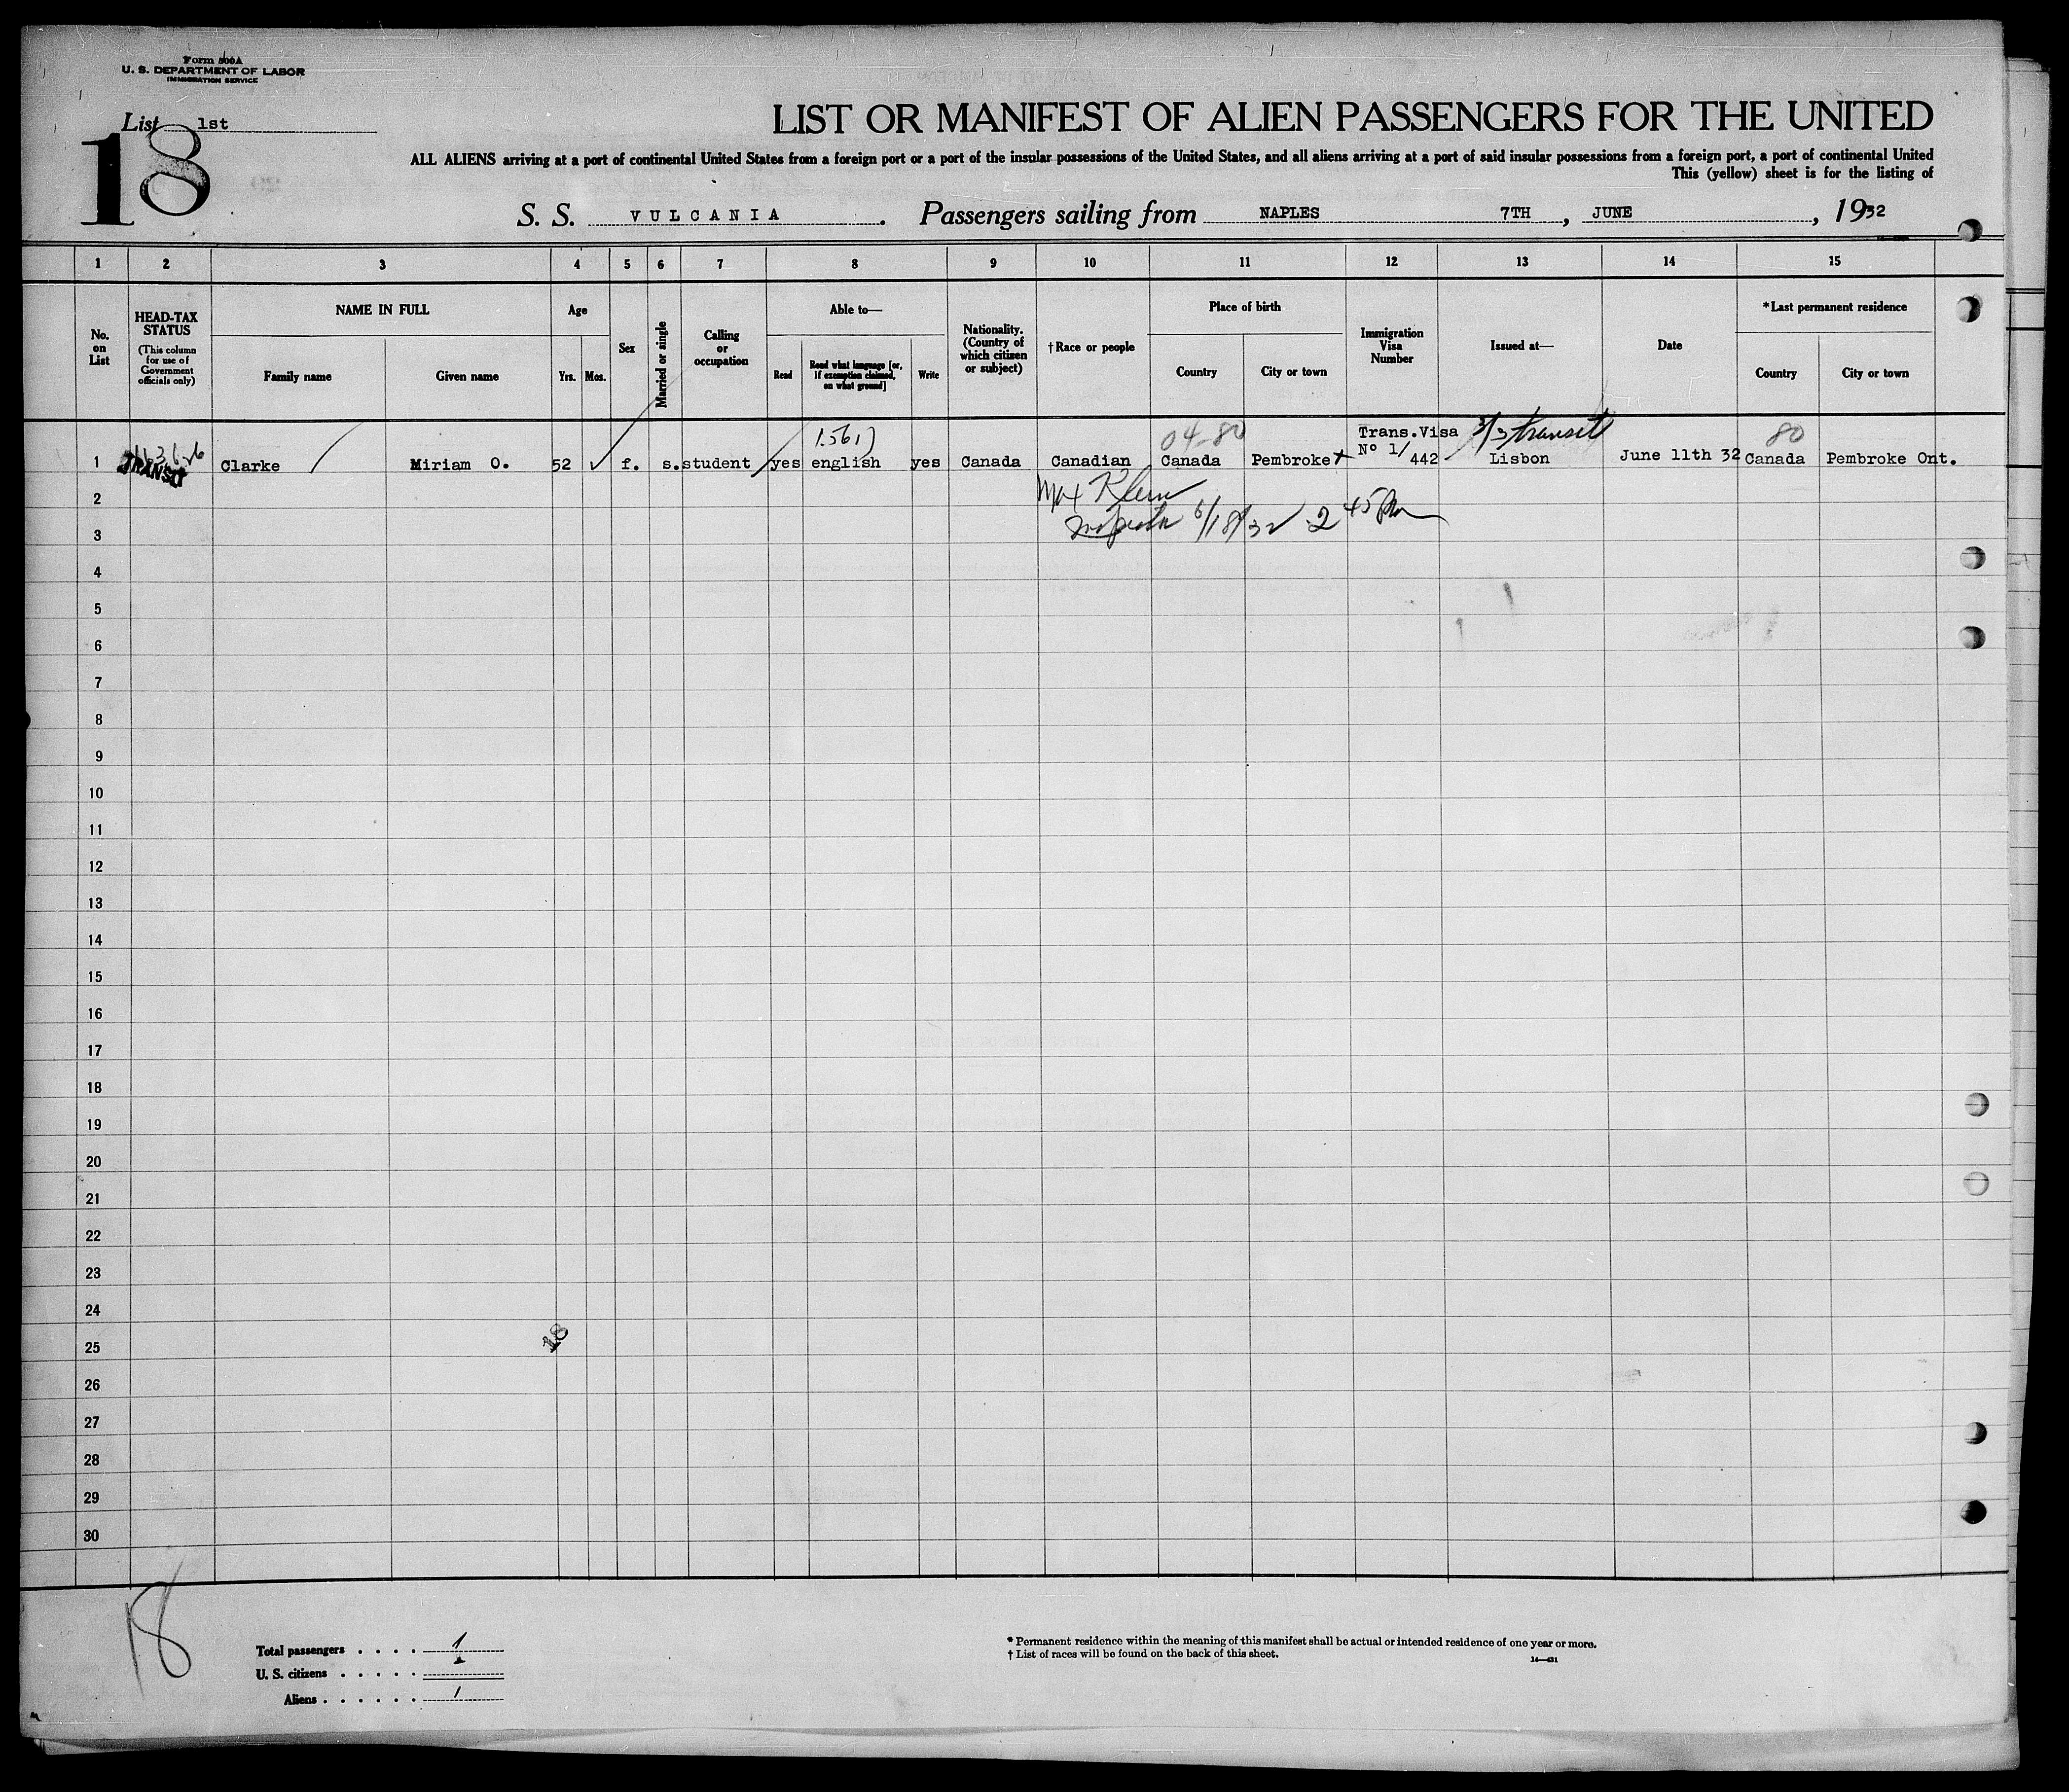 Form 500A
U. S. DEPARTMENT OF LABOR
IMMIGRATION SERVICE
List 1st
18
LIST OR MANIFEST OF ALIEN PASSENGERS FOR THE UNITED
ALL ALIENS arriving at a port of continental United States from a foreign port or a port of the insular possessions of the United States, and all aliens arriving at a port of said insular possessions from a foreign port, a port of continental United
This (yellow) sheet is for the listing of
S. S. VULCANIA. Passengers sailing from NAPLES 7TH, JUNE, 1932
1 2 3 4 5 6 7 8 9 10 11 12 13 14 15
No. on List
HEAD-TAX STATUS
(This column for use of Government officials only)
NAME IN FULL
Family name
Given name
Age
Yrs.
Mos.
Sex
Married or single
Calling or occupation
Able to—
Read
Read what language [or, if exemption claimed, on what ground]
Write
Nationality. (Country of which citizen or subject)
†Race or people
Place of birth
Country
City or town
Immigration Visa Number
Issued at—
Date
*Last permanent residence
Country
City or town
04-80
3/3 transit
80
Trans.Visa
Nº 1/
1 TRANSIT Clarke Miriam O. 52 f. s. student yes english yes Canada Canadian Canada Pembroke 442 Lisbon June 11th 32 Canada Pembroke Ont.
Max Klein
6/18/32 2 45 Pm
2
3
4
5
6
7
8
9
10
11
12
13
14
15
16
17
18
19
20
21
22
23
24
18
25
26
27
28
29
30
18
Total passengers . . . . 1
U. S. citizens . . . . .
Aliens . . . . . . 1
* Permanent residence within the meaning of this manifest shall be actual or intended residence of one year or more.
† List of races will be found on the back of this sheet.
14—431